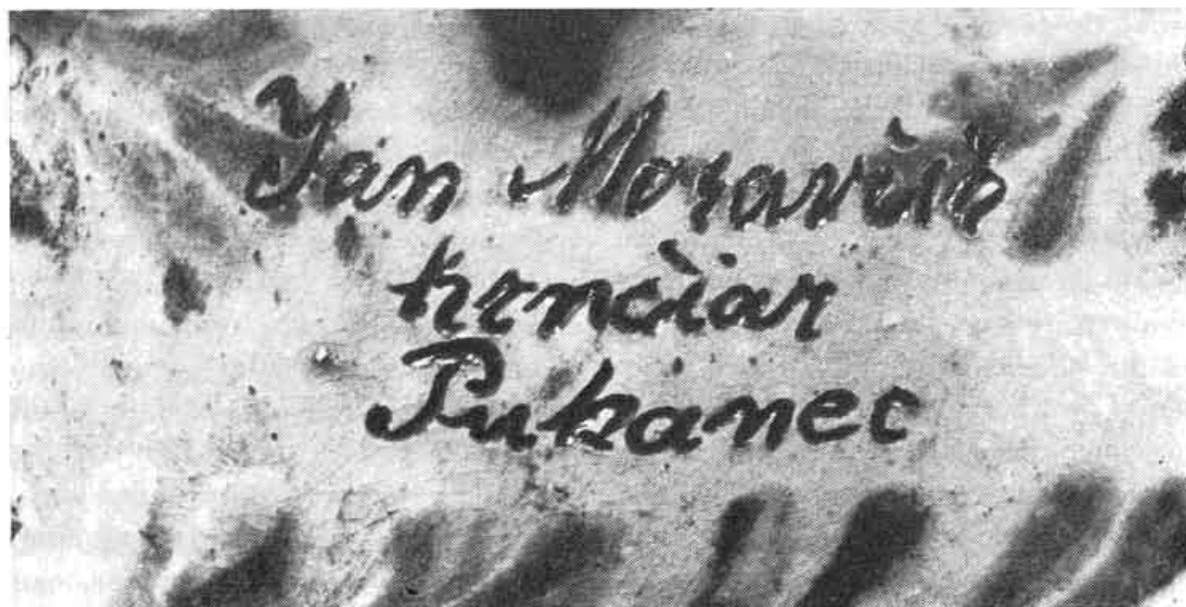 Jan Moravčik
hrnčiar
Pukanec